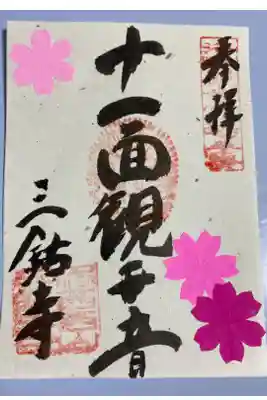 奉拝
十一面観世音
三鈷寺